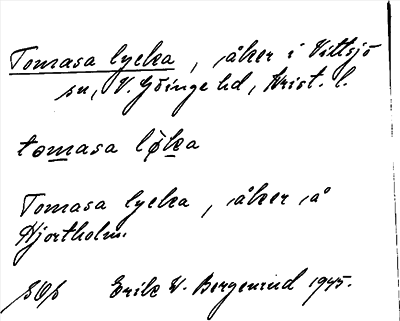 Tomasa lycka, åker i Vittsjö
sn, V. Göinge hd, Krist. l.
tomasa løka
Tomasa lycka, åker å
Hjortholm.
Erik W. Bergenrud 1945.